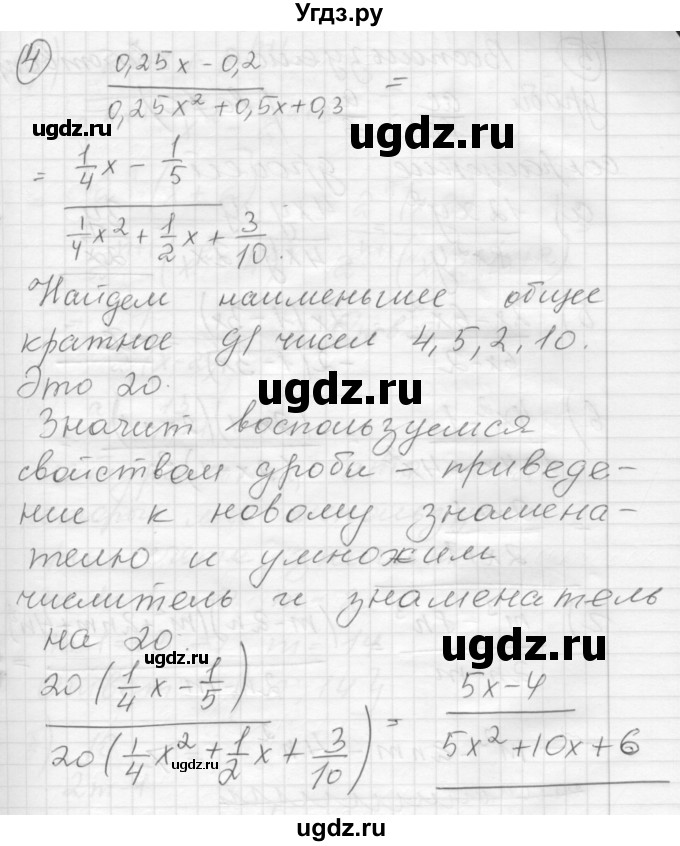 Угдз.ру
4) (0,25x - 0,2)/(0,25x² + 0,5x + 0,3) =
ugdz.ru ugdz.ru
= (1/4 x - 1/5)/(1/4 x² + 1/2 x + 3/10).
Найдем наименьшее общее
кратное д/ чисел 4, 5, 2, 10.
Это 20. ugdz.ru
Значит воспользуемся
свойством дроби - приведе-
ние к новому знамена-
телю и умножим
числитель и знаменатель
на 20. ugdz.ru
20(1/4 x - 1/5)/20(1/4 x² + 1/2 x + 3/10) = (5x - 4)/(5x² + 10x + 6)
ugdz.ru
ugdz.ru